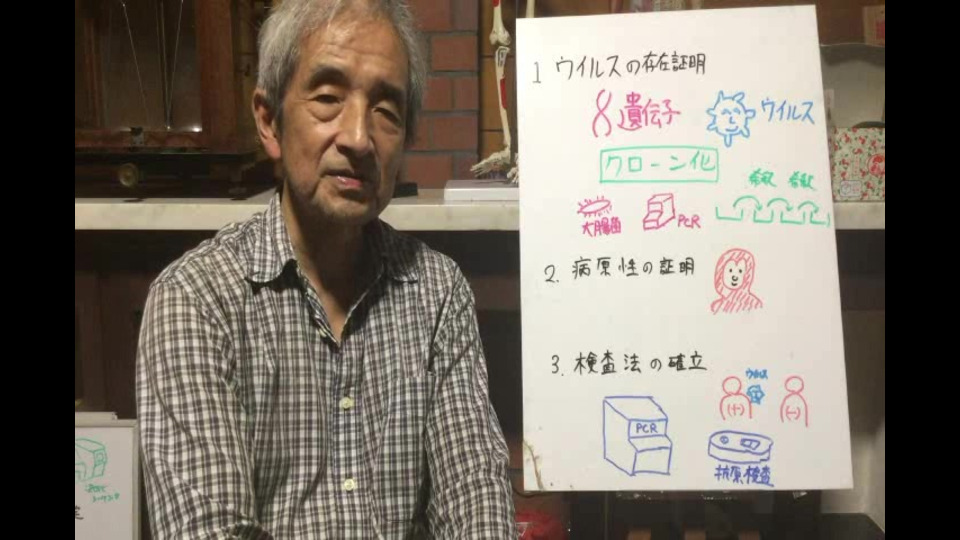 1 ウイルスの存在証明
遺伝子
ウイルス
クローン化
希釈 希釈
大腸菌
PCR
2. 病原性の証明
3. 検査法の確立
ウイルス
(+)
(-)
PCR
抗原検査